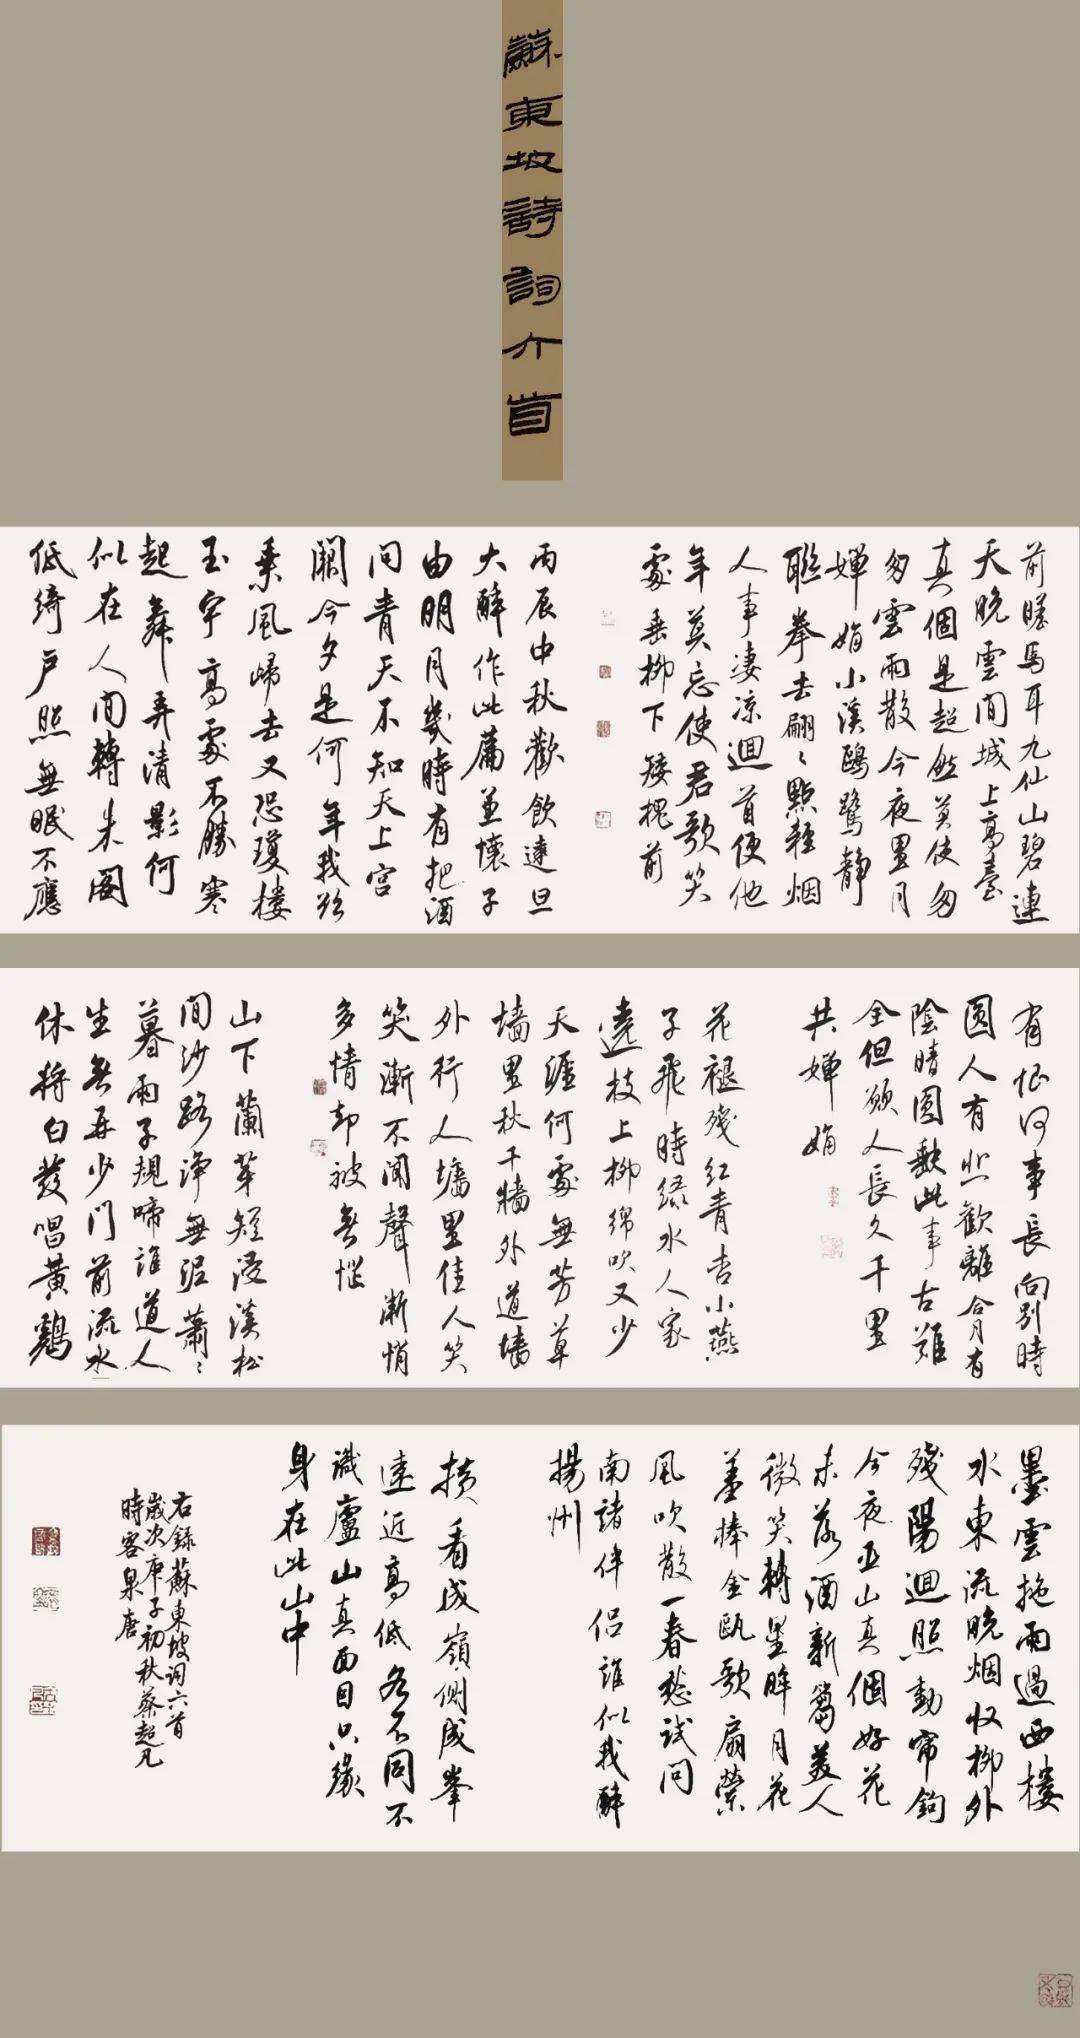 蘇東坡詩詞六首
前瞻馬耳九仙山碧連
天晚雲間城上高臺
真個是超然莫使匆
匆雲雨散今夜里月
嬋娟小溪鷗鷺靜
聯拳去翩〻點輕烟
人事凄凉迴首便他
年莫忘使君歌笑
處垂柳下矮槐前
丙辰中秋歡飲達旦
大醉作此篇並懷子
由明月幾時有把酒
問青天不知天上宮
闕今夕是何年我欲
乘風歸去又恐瓊樓
玉宇高處不勝寒
起舞弄清影何
似在人間轉朱閣
低綺戶照無眠不應
有恨何事長向別時
圓人有悲歡離合月有
陰晴圓缺此事古難
全但願人長久千里
共嬋娟
花褪殘紅青杏小燕
子飛時綠水人家
遶枝上柳綿吹又少
天涯何處無芳草
墻里秋千墻外道墻
外行人墻里佳人笑
笑漸不聞聲漸悄
多情却被無惱
山下蘭芽短浸溪松
間沙路淨無泥蕭〻
暮雨子規啼誰道人
生無再少門前流水
休將白髮唱黃鷄
墨雲拖雨過西樓
水東流晚烟收柳外
殘陽迴照動帘鉤
今夜巫山真個好花
未落酒新篘美人
微笑轉星眸月花
羞捧金甌歌扇縈
風吹散一春愁試問
南諸伴侶誰似我醉
揚州
橫看成嶺側成峯
遠近高低各不同不
識廬山真面目只緣
身在此山中
右錄蘇東坡詞六首
歲次庚子初秋蔡超凡
時客泉唐